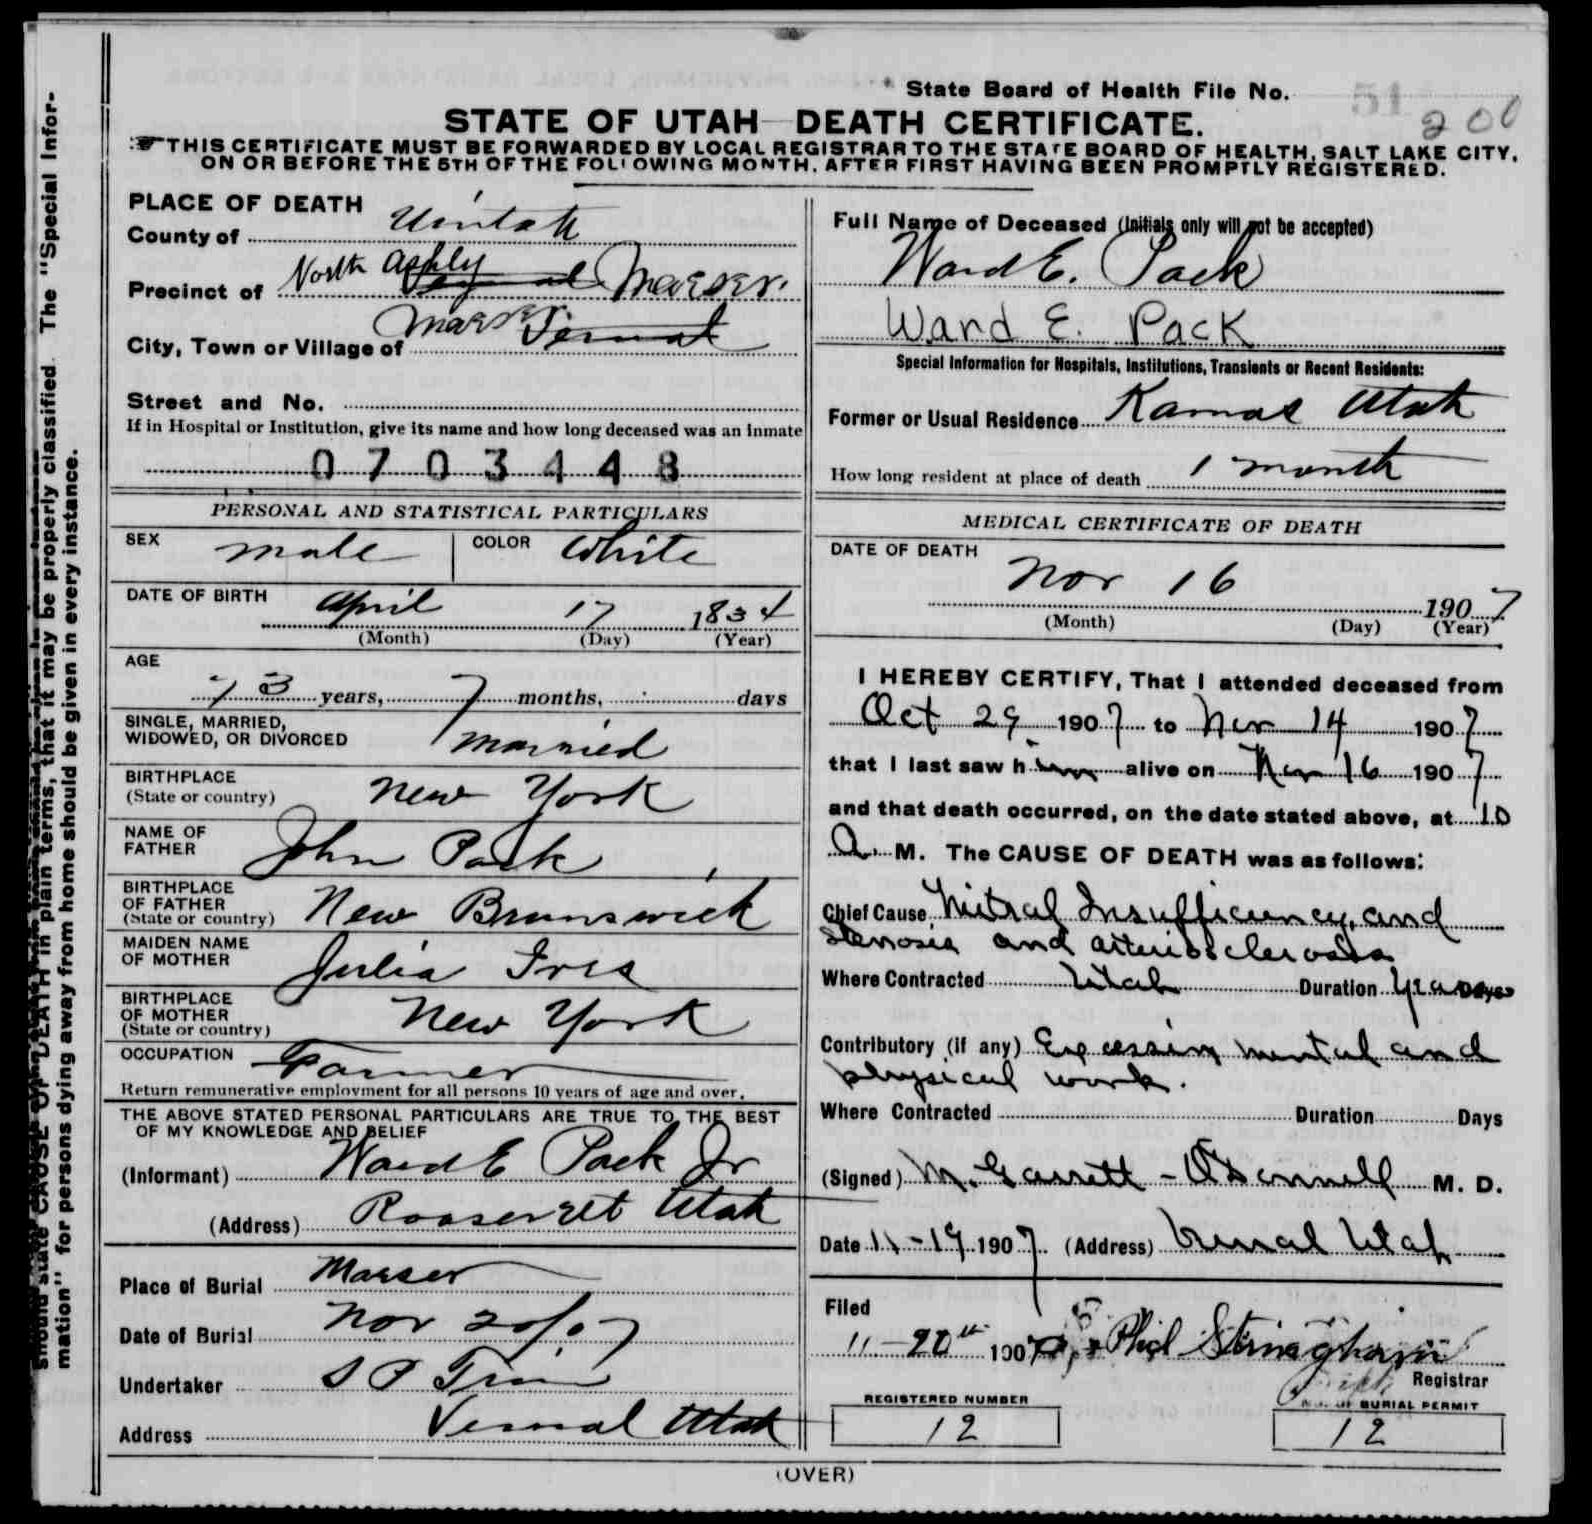 State Board of Health File No. 51 200
STATE OF UTAH DEATH CERTIFICATE.
THIS CERTIFICATE MUST BE FORWARDED BY LOCAL REGISTRAR TO THE STATE BOARD OF HEALTH, SALT LAKE CITY,
ON OR BEFORE THE 5TH OF THE FOLLOWING MONTH, AFTER FIRST HAVING BEEN PROMPTLY REGISTERED.
PLACE OF DEATH
County of Uintah
Precinct of North Ashly Vernal Maeser.
City, Town or Village of Maeser Vernal
Street and No.
If in Hospital or Institution, give its name and how long deceased was an inmate
0703448
PERSONAL AND STATISTICAL PARTICULARS
SEX male COLOR White
DATE OF BIRTH April 17 1834
(Month) (Day) (Year)
AGE
73 years, 7 months, days
SINGLE, MARRIED,
WIDOWED, OR DIVORCED married
BIRTHPLACE
(State or country) New York
NAME OF
FATHER John Pack
BIRTHPLACE
OF FATHER
(State or country) New Brunswick
MAIDEN NAME
OF MOTHER Julia Ives
BIRTHPLACE
OF MOTHER
(State or country) New York
OCCUPATION Farmer
Return remunerative employment for all persons 10 years of age and over.
THE ABOVE STATED PERSONAL PARTICULARS ARE TRUE TO THE BEST
OF MY KNOWLEDGE AND BELIEF
(Informant) Ward E Pack Jr
(Address) Roosevelt Utah
Place of Burial Maeser
Date of Burial Nov 20/07
Undertaker S P
Address Vernal Utah
Full Name of Deceased (Initials only will not be accepted)
Ward E. Pack
Ward E. Pack
Special Information for Hospitals, Institutions, Transients or Recent Residents:
Former or Usual Residence Kamas Utah
How long resident at place of death 1 month
MEDICAL CERTIFICATE OF DEATH
DATE OF DEATH
Nov 16 1907
(Month) (Day) (Year)
I HEREBY CERTIFY, That I attended deceased from
Oct 29 1907 to Nov 14 1907
that I last saw him alive on Nov 16 1907
and that death occurred, on the date stated above, at 10
A. M. The CAUSE OF DEATH was as follows:
Chief Cause Mitral Insufficiency, and
stenosis and arteriosclerosis
Where Contracted Utah Duration years Days
Contributory (if any) Excessive mental and
physical work.
Where Contracted Duration Days
(Signed) M. Garrett - O'Donnell M. D.
Date 11-19 1907 (Address) Vernal Utah
Filed
11-20th 1907 Phil Stringham
Registrar
REGISTERED NUMBER
12
No. OF BURIAL PERMIT
12
(OVER)
should state CAUSE OF DEATH in plain terms, that it may be properly classified. The "Special Infor-
mation" for persons dying away from home should be given in every instance.